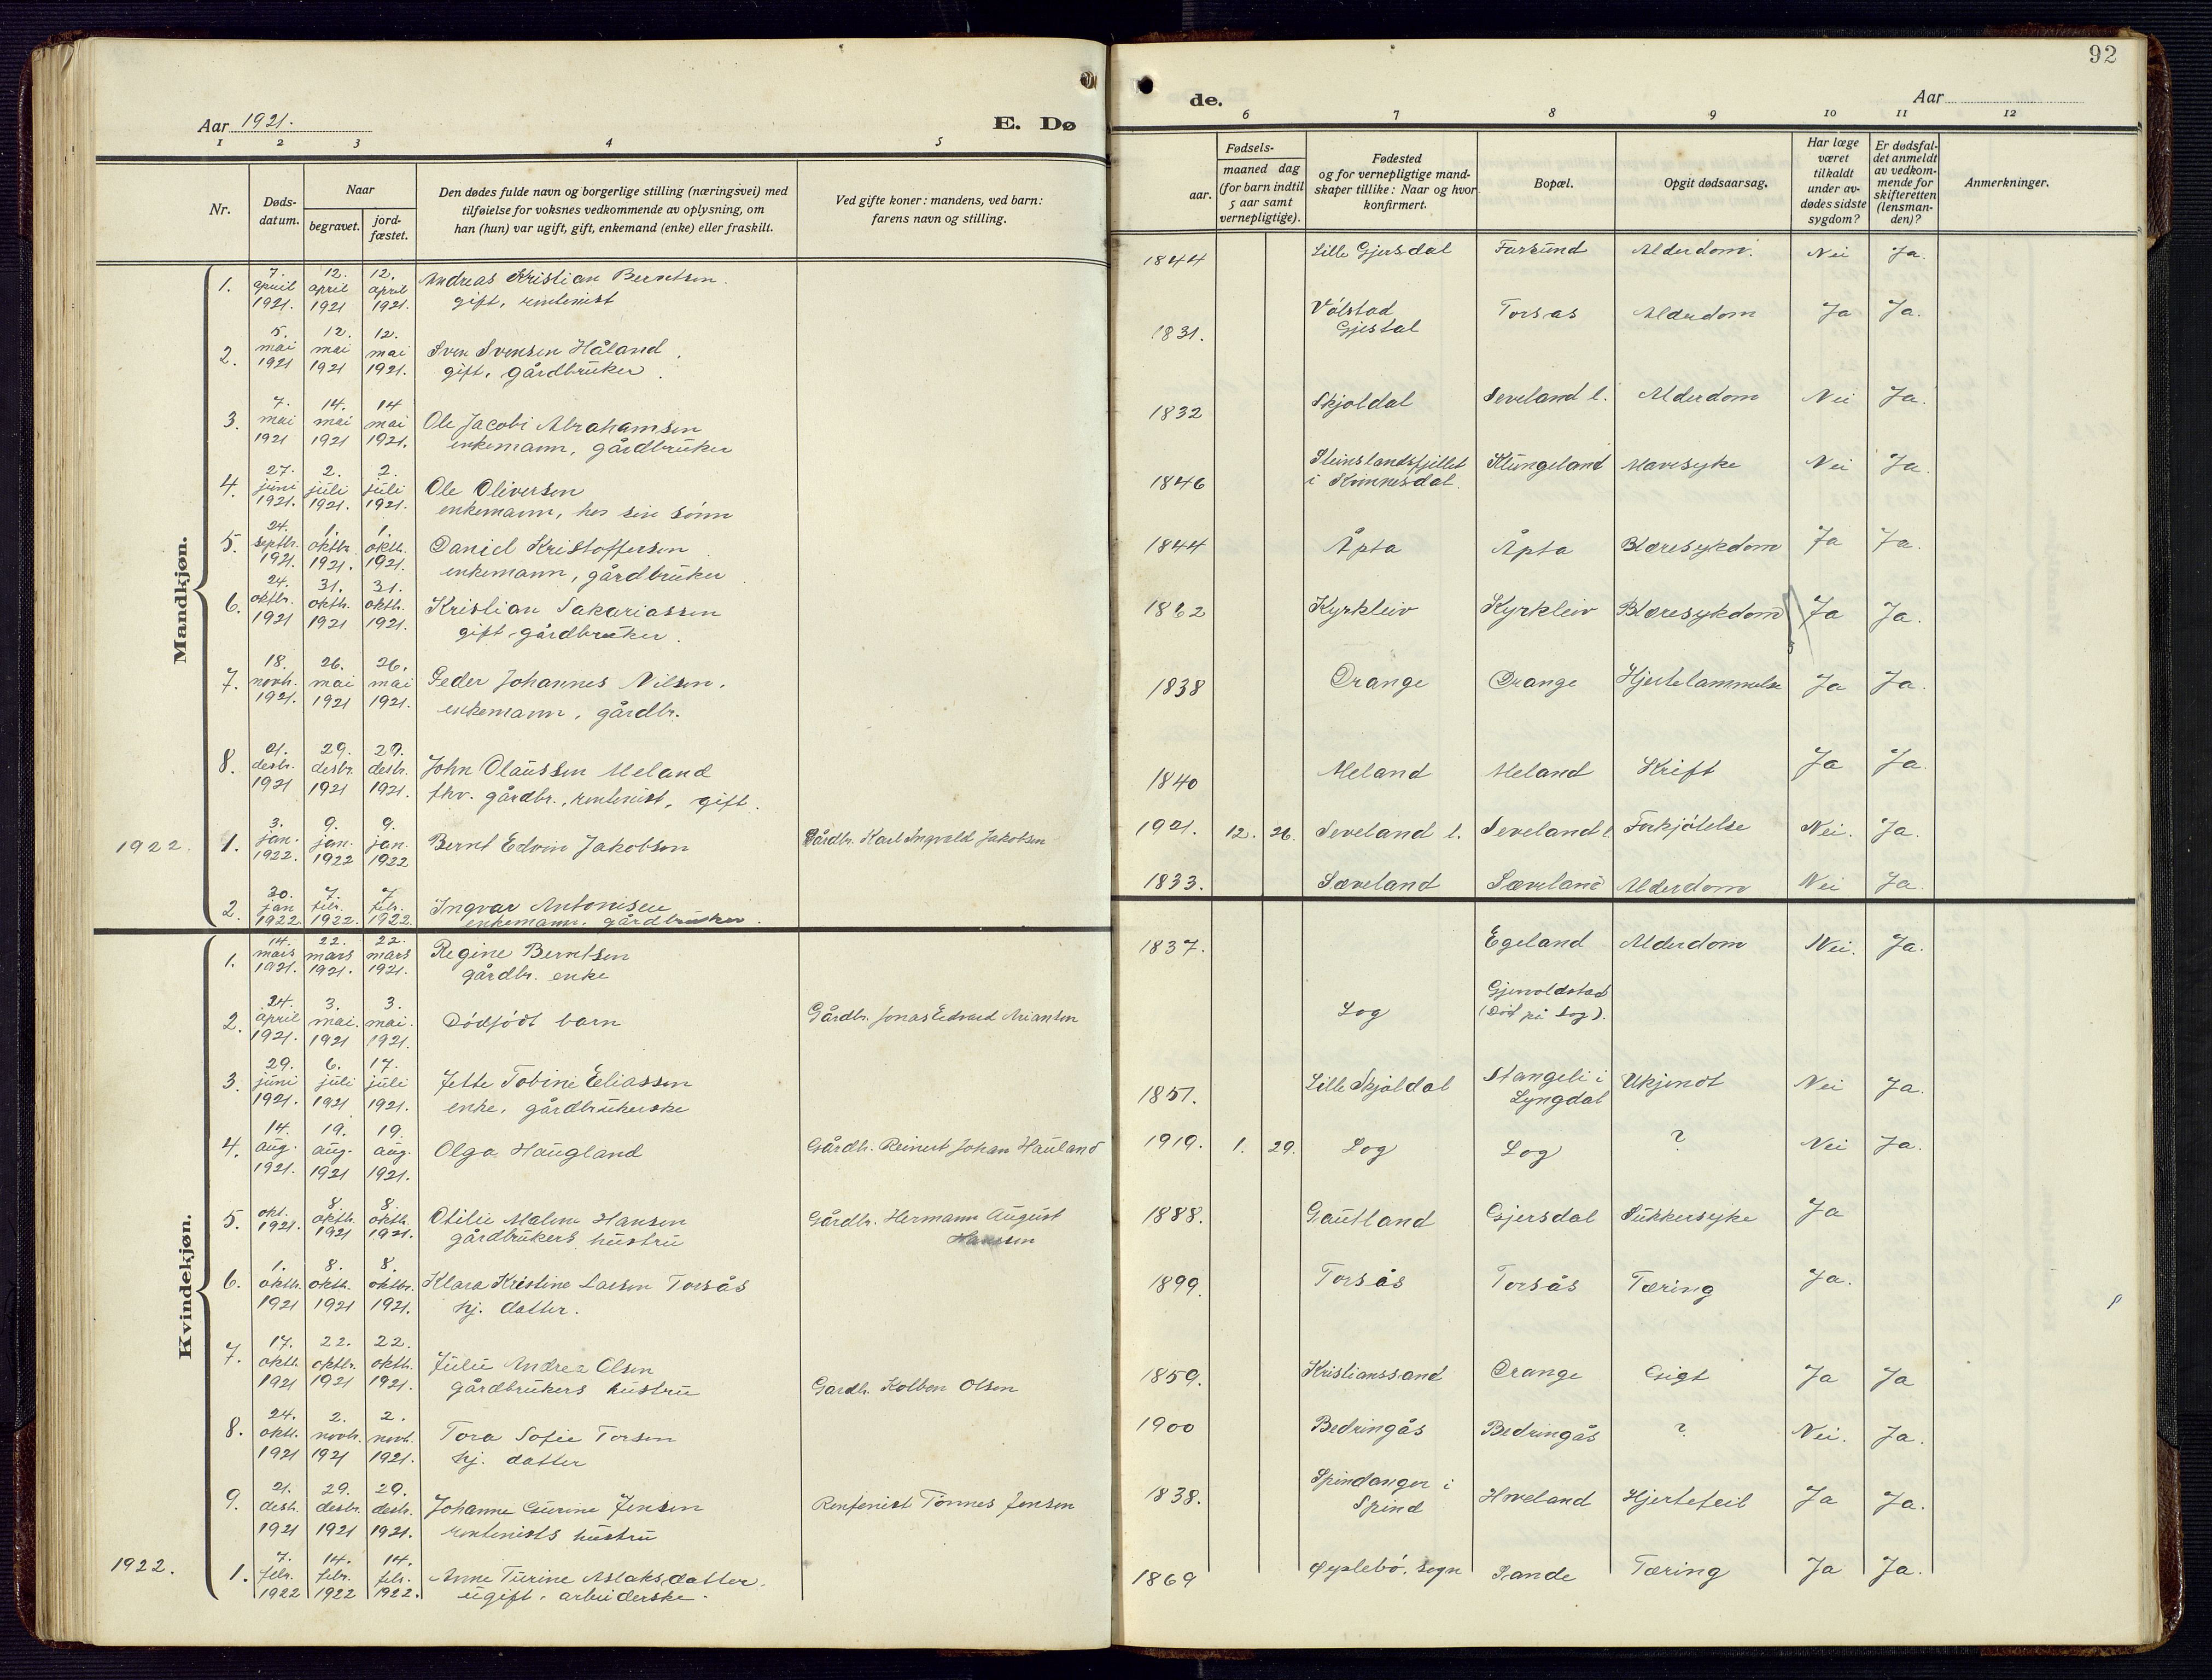 92
Aar 1921.
E. Dø
de.
Aar
1 2 3 4 5 6 7 8 9 10 11 12
Nr.
Døds-
datum.
Naar
begravet.
jord-
fæstet.
Den dødes fulde navn og borgerlige stilling (næringsvei) med
tilføielse for voksnes vedkommende av oplysning, om
han (hun) var ugift, gift, enkemand (enke) eller fraskilt.
Ved gifte koner: mandens, ved barn:
farens navn og stilling.
Fødsels-
aar.
maaned dag
(for barn indtil
5 aar samt
vernepligtige).
Fødested
og for vernepligtige mand-
skaper tillike: Naar og hvor
konfirmert.
Bopæl.
Opgit dødsaarsag.
Har læge
været
tilkaldt
under av-
dødes sidste
sygdom?
Er dødsfal-
det anmeldt
av vedkom-
mende for
skifteretten
(lensman-
den)?
Anmerkninger.
Mandkjøn.
1. 7. april 1921. 12. april 1921 12. april 1921. Andreas Kristian Berntsen.
gift, rentenist
1844 Lille Gjersdal Farsund Alderdom. Nei Ja.
2. 5. mai 1921 12. mai 1921 12. mai 1921. Sven Svensen Håland
gift, gårdbruker
1831. Vølstad
Gjestal Torsås Alderdom Ja Ja.
3. 7. mai 1921 14. mai 1921 14 mai 1921. Ole Jacobi Abrahamsen
enkemann, gårdbruker
1832 Skjoldal Seveland l. Alderdom Nei Ja.
4. 27. juni 1921. 2. juli 1921. 2. juli 1921. Ole Oliversen
enkemann, hos sin sønn
1846 Steinslandsfjellet
i Kvinnesdal. Klungeland Mavesyke Nei Ja.
5. 24. septbr. 1921. 1. oktbr. 1921. 1. oktb. 1921. Daniel Kristoffersen
enkemann, gårdbruker
1844 Åpta Åpta Blæresykdom Ja Ja.
6. 24. oktbr. 1921 31. oktb. 1921 31. oktb. 1921. Kristian Sakariassen
gift, gårdbruker.
1862 Kyrkleiv Kyrkleiv Blæresykdom Ja Ja.
7. 18. novb. 1921. 26. mai 1921 26. mai 1921. Peder Johannes Nilsen.
enkemann, gårdbr.
1838 Drange Drange Hjertelammelse Ja Ja.
8. 21. desbr. 1921 29. desbr. 1921 29. desbr. 1921. John Olaussen Meland
fhv. gårdbr., rentenist, gift.
1840 Meland Meland Kreft Ja Ja.
1922. 1. 3. jan. 1922. 9. jan. 1922 9. jan. 1922 Bernt Edvin Jakobsen Gårdbr. Karl Ingvald Jakobsen
1921. 12. 26. Seveland l. Seveland l Forkjølelse Nei. Ja.
2. 30. jan 1922. 7. febr. 1922. 7. febr. 1922. Ingvar Antonisen
enkemann, gårdbruker.
1833. Sæveland Sæveland Alderdom Nei Ja.
Kvindekjøn.
1. 14. mars 1921. 22. mars 1921. 22. mars 1921. Regine Berntsen
gårdbr. enke
1837. Egeland Alderdom Nei. Ja.
2. 24. april 1921. 3. mai. 1921 3. mai. 1921. Dødfødt barn Gårdbr. Jonas Edvard Ariansen
Log Gjervoldstad
(Død på Log).
3. 29. juni 1921. 6. juli 1921 17. juli 1921. Jette Tobine Eliassen
enke, gårdbrukerske
1851. Lille Skjoldal Stangeli i
Lyngdal Ukjendt Nei Ja.
4. 14. aug. 1921. 19. aug. 1921 19. aug. 1921. Olga Haugland Gårdb. Reinert Johan Hauland
1919. 1. 29. Log Log ? Nei Ja.
5. okt. 1921. 8. oktb. 1921 8. oktb. 1921. Otilie Malene Hansen
gårdbrukers hustru Gårdbr. Hermann August
Hansen
1888. Gautland Gjersdal Sukkersyke Ja
6. 1. oktb. 1921 8. oktb. 1921 8. oktbr. 1921. Klara Kristine Larsen Torsås
hj. datter.
1899. Torsås Torsås Tæring Ja.
7. 17. oktb. 1921 22. oktbr. 1921 22. oktb. 1921. Julie Andrea Olsen
gårdbrukers hustru Gardb. Kolben Olsen
1859. Kristianssand Drange Gigt Ja Ja
8. 24. oktb. 1921 2. novb. 1921 2. novb. 1921. Tora Sofie Torsen
hj. datter
1900 Bedringås Bedringås ? Nei. Ja.
9. 21. desb. 1921 29. desbr. 1921 29. desbr. 1921. Johanne Gurine Jensen
rentenists hustru Rentenist Tønnes Jensen
1838. Spindanger i
Spind Hoveland Hjertefeil Ja Ja.
1922. 1. 7. febr. 1922 14. febr. 1922 14. febr. 1922. Anne Turine Aslaksdatter.
ugift, arbeiderske.
1869 Øyslebø, sogn Sande Tæring Ja Ja.